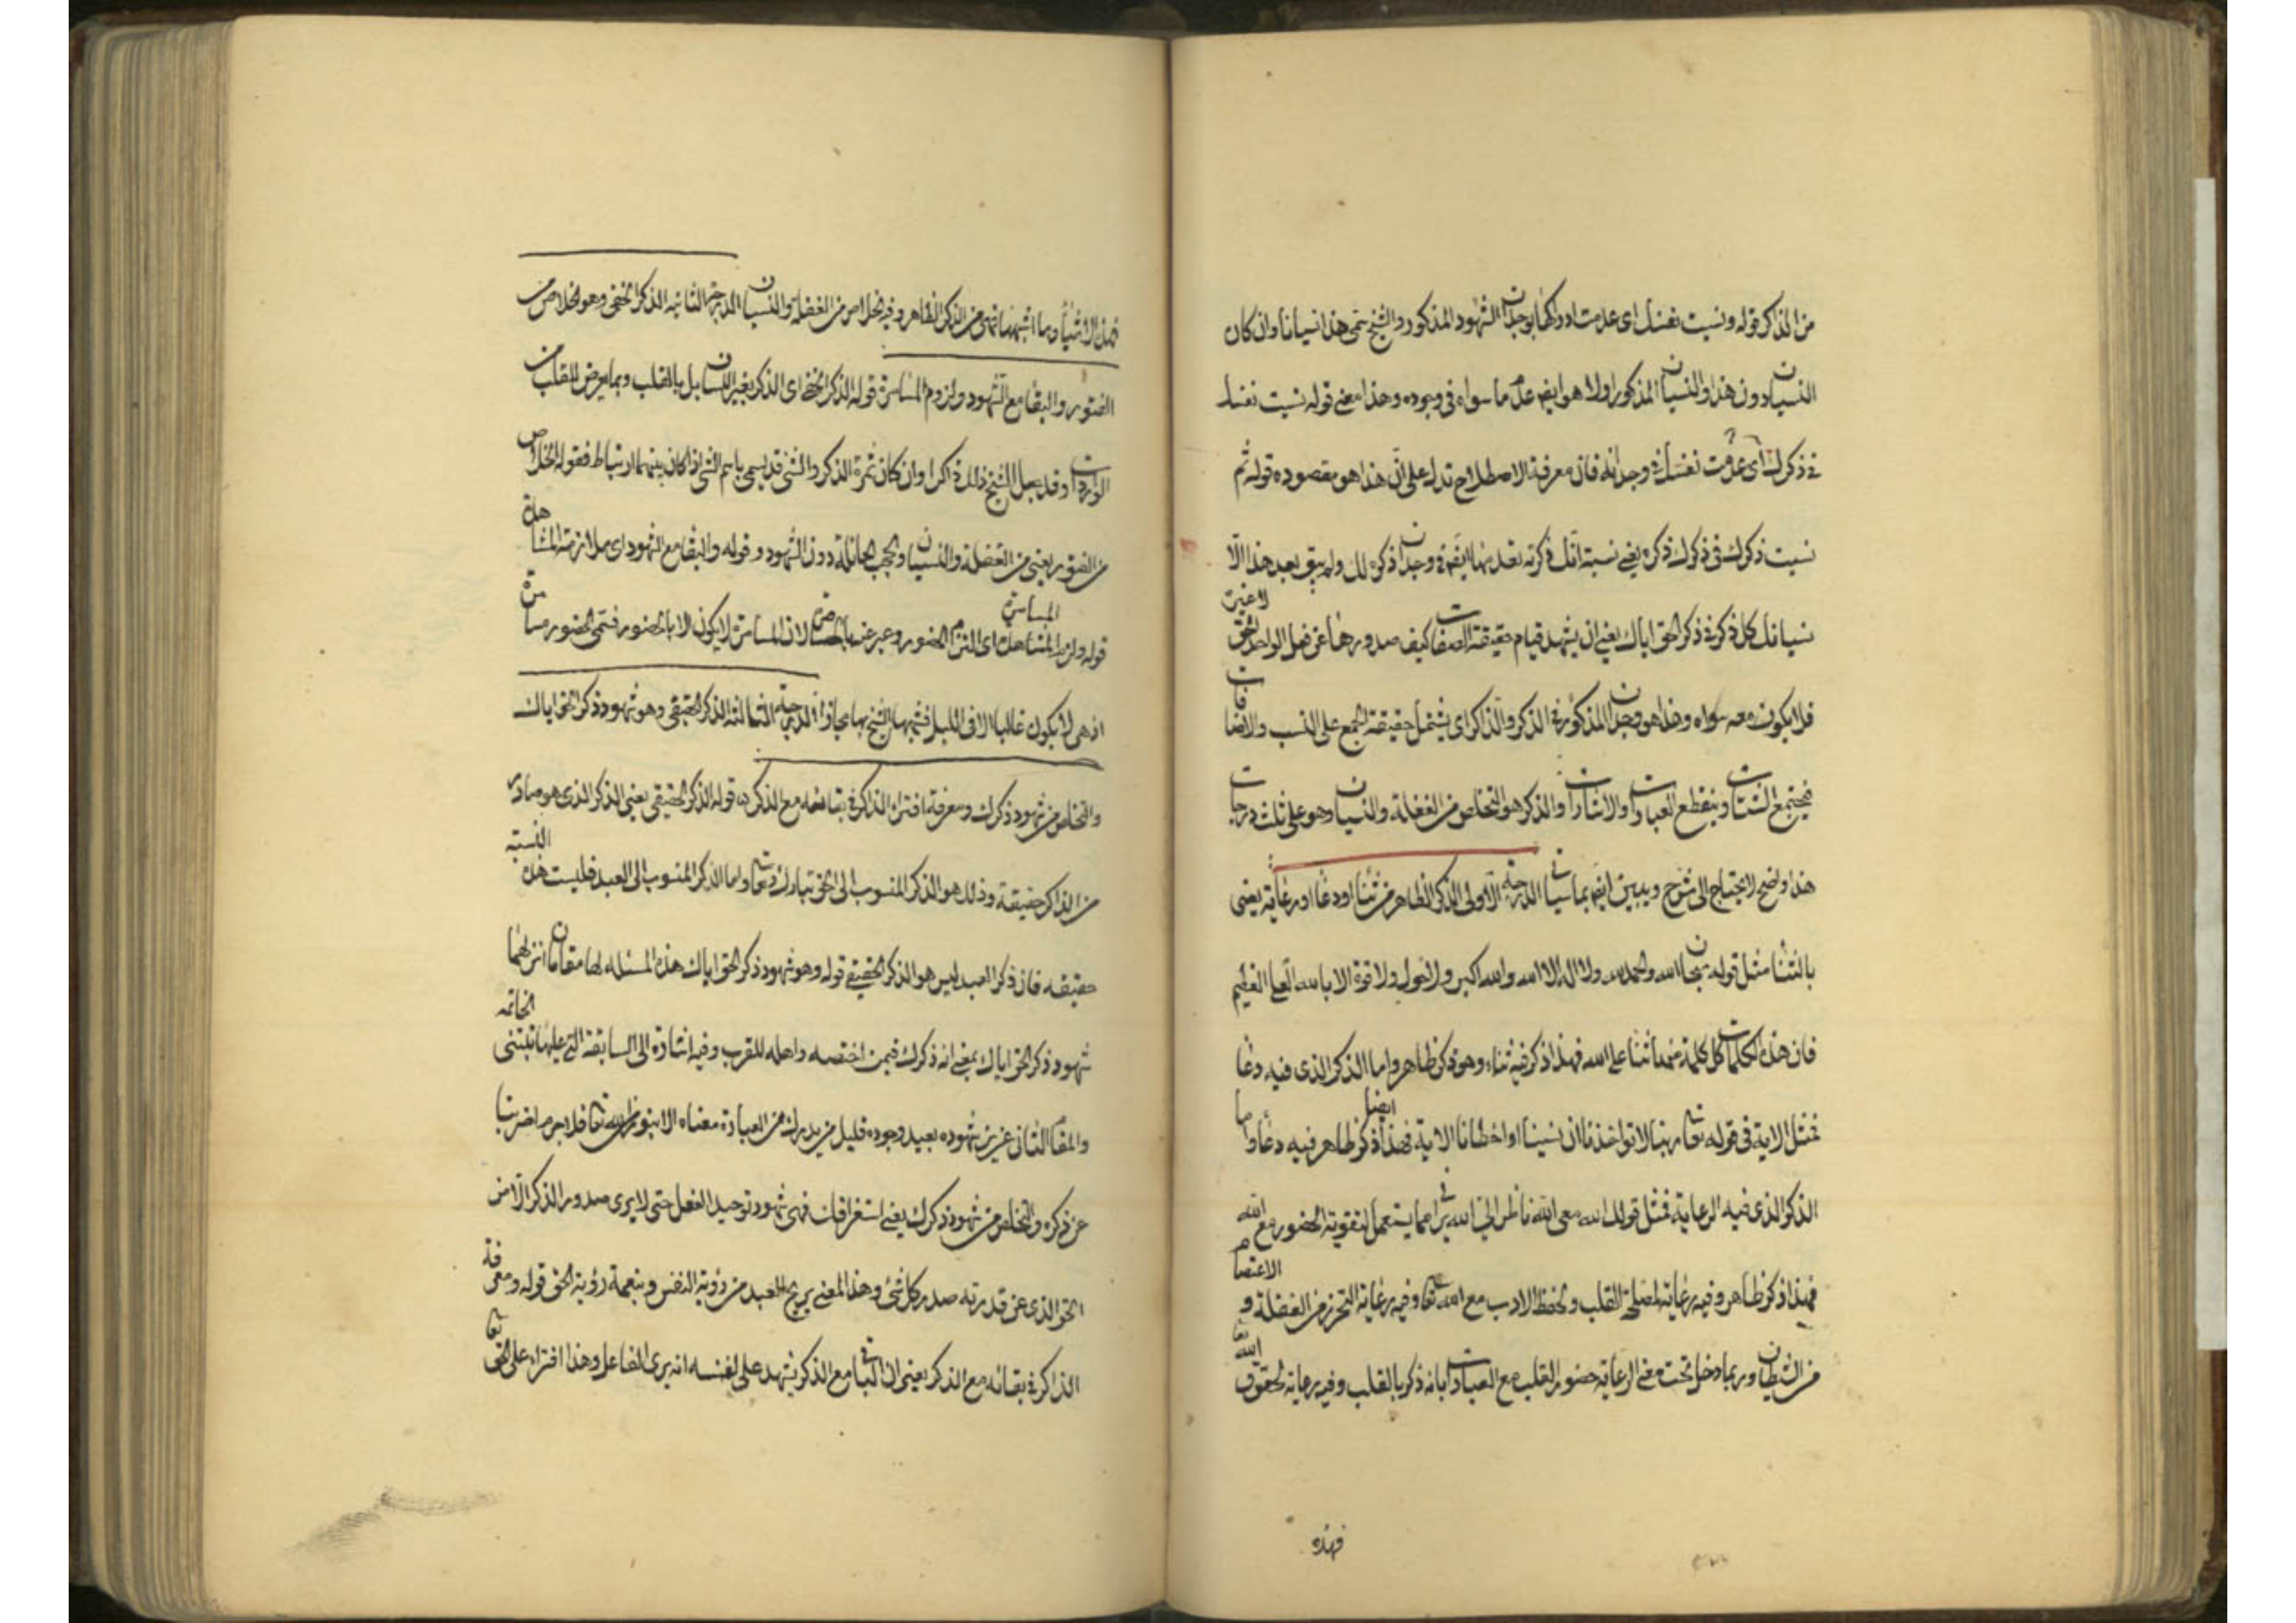 من الذاكر قوله ونسيت نفسك اى عدمت ادراكها بوجدان الشهود المذكور والشيخ سمى هذا نسيانا وان كان
النسيان دون هذا والنسيان المذكور اولا هو ايضا عدم ما سواه فى وجوده وهذا معنى قوله نسيت نفسك
فى ذكرك اى عدمت نفسك فى وجدانك فان معرفة الاصطلاح تدل على ان هذا هو مقصوده قوله ثم
نسيت ذكرك فى ذكرك ذكره يعنى نسبة انك ذكرته تعدمها ايضا فى وجدان ذكره لك ولم يبق بعد هذا الا
نسيانك كل ذكر فى ذكر الحق اياك يعنى ان يشهد قيام حقيقة الصفات كيف صدورها عن فعل الواحد الحق لا غيره
فلا يكون معه سواه وهذا هو وجدان المذكور فى الذكر والذاكر اى يشتمل حقيقة الجمع على النسب والاضافات
فيجتمع الشتات وينقطع العبارات والاشارات والذكر هو التخلص من الغفلة والنسيان وهو على ثلث درجات
هذا واضح لا يحتاج الى شرح ويبين ايضا بما سياتى الدرجة الاولى الذكر الظاهر من ثناء او دعاء او رعاية يعنى
بالثناء مثل قوله سبحان الله والحمد لله ولا اله الا الله والله اكبر ولا حول ولا قوة الا بالله العلى العظيم
فان هذه الكلمات كل كلمة منها ثناء على الله فهذا ذكر فيه ثناء وهو ذكر ظاهر واما الذكر الذى فيه دعا
فمثل الاية فى قوله تعا ربنا لا تواخذنا ان نسينا او اخطانا الاية فهذا ايضا ذكر ظاهر فيه دعا واما
الذكر الذى فيه الرعاية فمثل قولك الله معى الله ناظر الى الله يرانى مما يستعمل لتقوية الحضور مع الله
فهذا ذكر ظاهر وفيه رعاية لمصلحة القلب ولحفظ الادب مع الله تعا وفيه رعاية التحرز من الغفلة و الاعتصام
من الشيطان وربما دخل تحت معنى الرعاية حضور القلب مع العبادات بانه ذكر بالقلب وفيه رعاية لحقوق الله تعا
فهذه
فهذه الاشياء وما اشبهها تسمى من الذكر الظاهر وفيه الخلاص من الغفلة والنسيان الدرجة الثانية الذكر الخفى وهو الخلاص من
الفتور والبقا مع الشهود ولزوم المسامرة قوله الذكر الخفى اى الذكر بغير اللسان بل بالقلب وبما يعرض للقلب من
الواردات وقد يجعل الشيخ ذلك ذكرا وان كان ثمرة الذكر والشئ قد يسمى باسم الشئ اذا كان بينهما ارتباط فقوله الخلاص
من الفتور يعنى من الغفلة والنسيان والحجب الحائلة دون الشهود وقوله والبقا مع الشهود اى ملازمة المشاهدة
قوله ولزوم المشاهدة المسامرة اى التزام الحضور وعبر عنه بالمسامرة لان المسامرة لا يكون الا بالحضور فسمى الحضور مسامرة
اذ هى لا يكون غالبا الا فى الليل فشبهها الشيخ بها مجازا الدرجة الثالثة الذكر الحقيقى وهو شهود ذكر الحق اياك
والتخلص من شهود ذكرك ومعرفة افتراء الذاكر فى بقائه مع الذكر قوله الذكر الحقيقى يعنى الذكر الذى هو صادر
من الذاكر حقيقة وذلك هو الذكر المنسوب الى الحق تبارك وتعا واما الذكر المنسوب الى العبد فليست هذه النسبة
حقيقه فان ذكر العبد ليس هو الذكر الحقيقى قوله وهو شهود ذكر الحق اياك هذه المسئله لها مقامان انزلهما
شهود ذكر الحق اياك بمعنى انه ذكرك فيمن اختصه واهله للقرب وفيه اشارة الى السابقة التى عليها تبتنى الخاتمه
والمقام الثانى عزيز شهوده بعيد وجوده قليل من يدرك من العبادة معناه الا بنور الله تعا فلا جرم اضربنا
عن ذكره والتخلص من شهود ذكرك يعنى استغراقك فى شهود توحيد الفعل حتى لا يرى صدور الذكر الا من
الحق الذى عن قدرته صدر كل شئ وهذا المعنى يريح العبد من رؤية النفس وينعمه رؤية الحق قوله ومعرفة
الذاكر فى بقائه مع الذكر يعنى ان الباقى مع الذكر يشهد على نفسه انه يرى الفاعل وهذا افتراء على الحق تعا